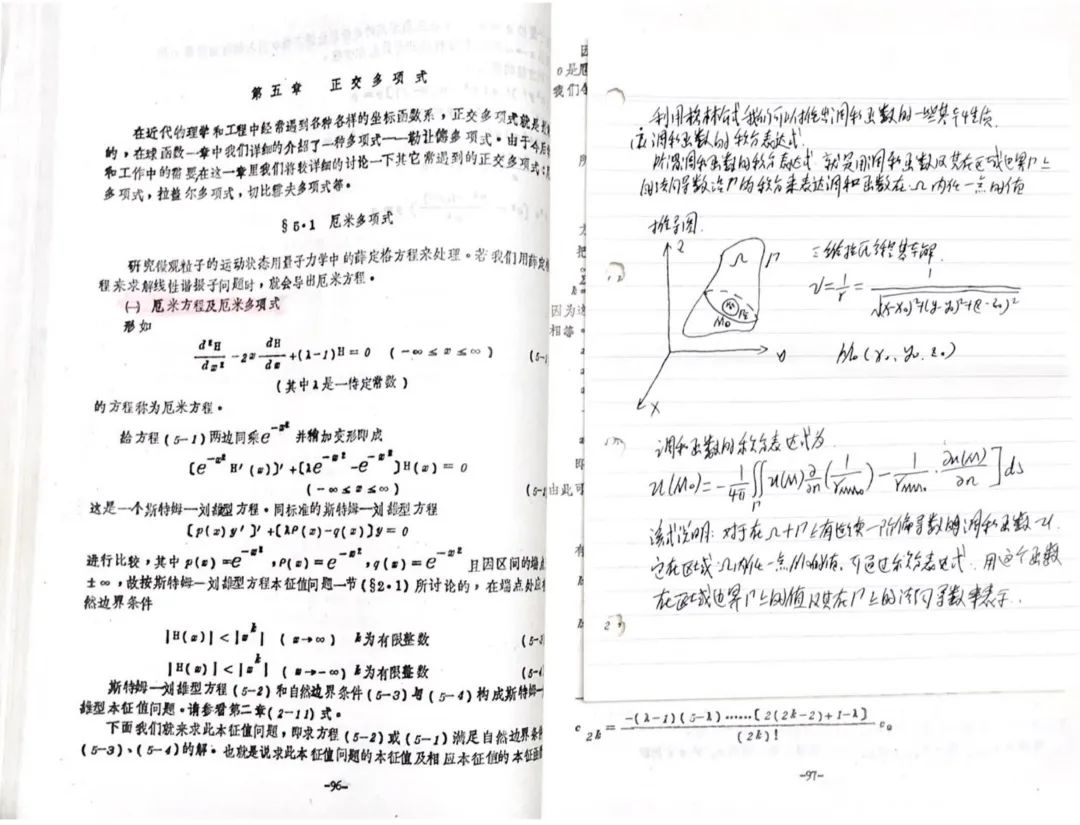 第五章 正交多项式
在近代物理学和工程中经常遇到各种各样的坐标函数系，正交多项式就是
的，在球函数一章中我们详细的介绍了一种多项式——勒让德多项式。由于今后
和工作中的需要在这一章里我们将较详细的讨论一下其它常遇到的正交多项式：
多项式，拉盖尔多项式，切比雪夫多项式等。
§5·1 厄米多项式
研究微观粒子的运动状态用量子力学中的薛定格方程来处理。若我们用薛定
程来求解线性谐振子问题时，就会导出厄米方程。
㈠ 厄米方程及厄米多项式
形如
d²H/dx² -2x dH/dx +(λ-1)H=0 (-∞≤x≤∞) (5-
(其中λ是一待定常数)
的方程称为厄米方程。
给方程(5-1)两边同乘e^{-x²} 并稍加变形即成
[e^{-x²} H′(x)]′+[λe^{-x²} -e^{-x²}]H(x)=0
(-∞≤x≤∞) (5-
这是一个斯特姆—刘雄型方程。同标准的斯特姆—刘雄型方程
[p(x)y′]′+[λP(x)-q(x)]y=0
进行比较，其中p(x)=e^{-x²}，P(x)=e^{-x²}，q(x)=e^{-x²} 且因区间的端点
±∞，故按斯特姆—刘雄型方程本征值问题一节(§2·1)所讨论的，在端点处应
然边界条件
|H(x)|<|x^k| (x→∞) k为有限整数 (5-3
|H(x)|<|x^k| (x→-∞) k为有限整数 (5-4
斯特姆—刘雄型方程(5-2)和自然边界条件(5-3)与(5-4)构成斯特姆—
雄型本征值问题。请参看第二章(2-11)式。
下面我们就来求此本征值问题，即求方程(5-2)或(5-1)满足自然边界条件
(5-3)、(5-4)的解。也就是说求此本征值问题的本征值及相应本征值的本征函
-96-
因
0是厄
我们今
所
方
把
因为这
相等。
即
由此可
有
利用格林公式我们可以推出调和函数的一些基本性质.
调和函数的积分表达式.
所谓调和函数的积分表达式.就是用调和函数及其在区域边界Γ上
的法向导数沿Γ的积分来表达调和函数在Ω内任一点的值
推导图.
z
Ω Γ
M₀
y
x
三维拉氏方程基本解.
v=1/r=1/√(x-x₀)²+(y-y₀)²+(z-z₀)²
M₀(x₀,y₀,z₀)
调和函数的积分表达式为
u(M₀)=-1/4π ∬_Γ [u(M) ∂/∂n (1/r_{MM₀}) - 1/r_{MM₀} · ∂u(M)/∂n] ds
该式说明:对于在Ω+Γ上有连续一阶偏导数的调和函数u.
它在区域Ω内任一点的值,可通过积分表达式.用这个函数
在区域边界Γ上的值及其在Γ上的法向导数来表示.
c_{2k}=-(λ-1)(5-λ)……[2(2k-2)+1-λ]/(2k)! c₀
-97-